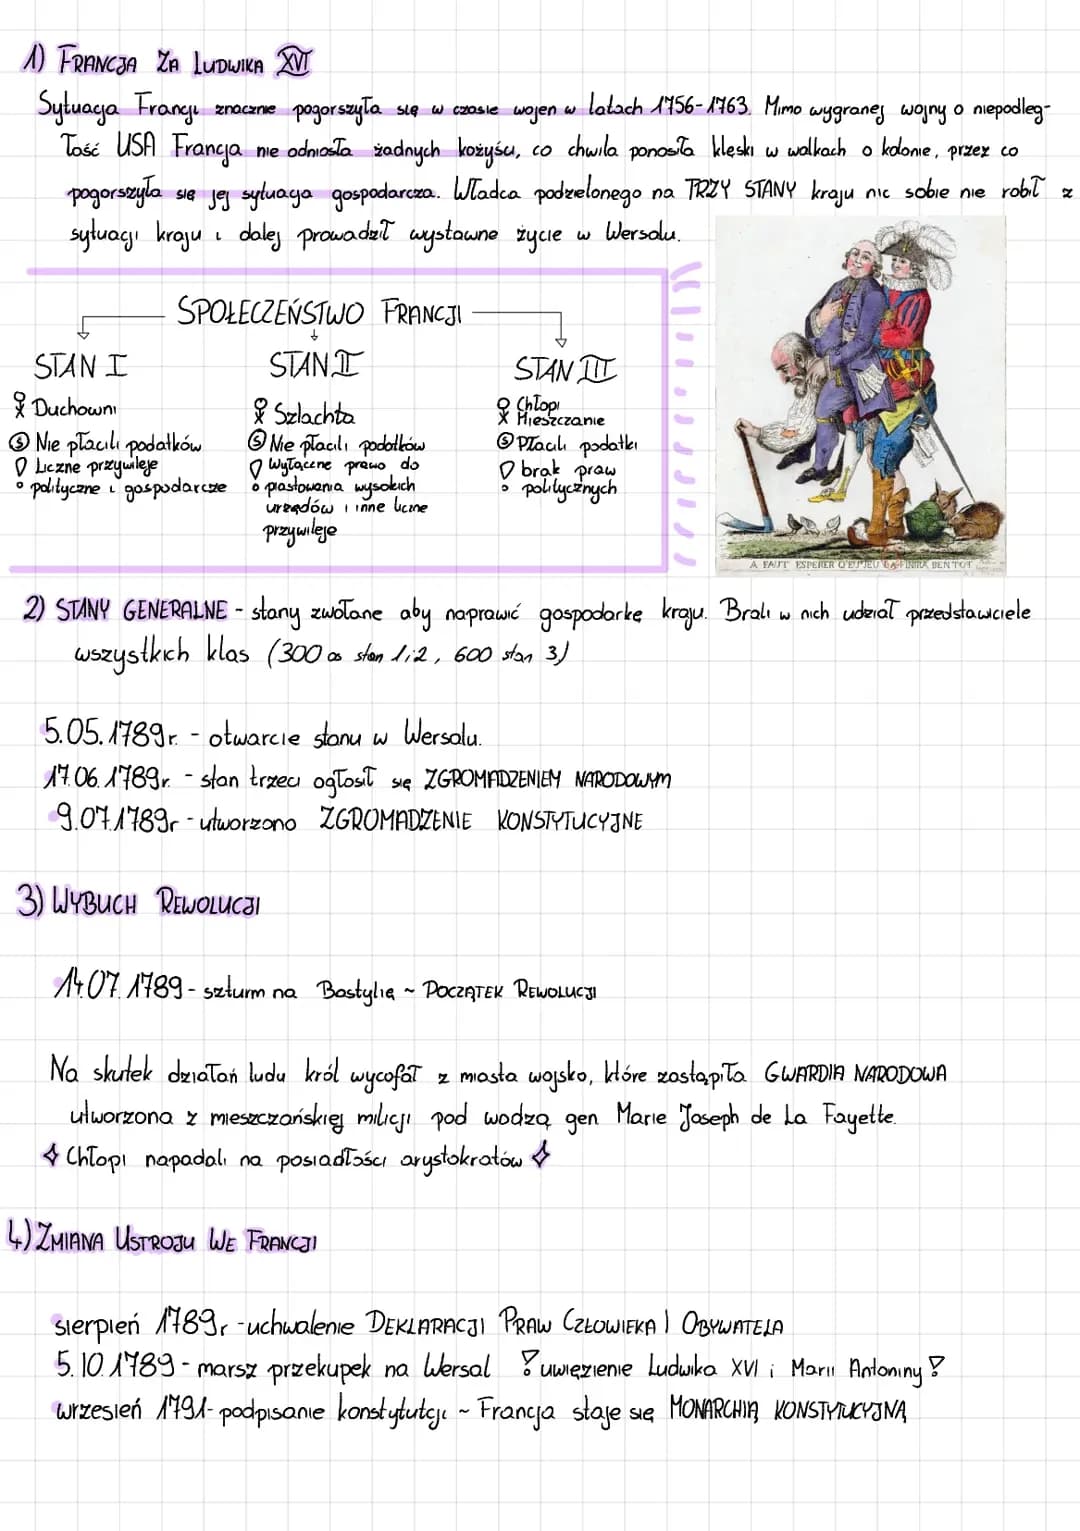 1) FRANCJA ZA LUDWIKA XVI
Sytuacja Francji znacznie pogorszyła się w czasie wojen w latach 1756-1763. Mimo wygranej wojny o niepodleg-
łość USA Francja nie odniosła żadnych kożyści, co chwila ponosiła klęski w walkach o kolonie, przez co
pogorszyła się jej sytuacja gospodarcza. Władca podzielonego na TRZY STANY kraju nic sobie nie robił z
sytuacji kraju i dalej prowadził wystawne życie w Wersalu.
SPOŁECZEŃSTWO FRANCJI
STAN I
Duchowni
Nie płacili podatków
Liczne przywileje
polityczne i gospodarcze
STAN II
Szlachta
Nie płacili podatków
Wyłączne prawo do
piastowania wysokich
urzędów i inne liczne
przywileje
STAN III
Chłopi
Mieszczanie
Płacili podatki
brak praw
politycznych
A FAUT ESPERER Q'EU JEU LA FINIRA BEN TOT
2) STANY GENERALNE - stany zwołane aby naprawić gospodarkę kraju. Brali w nich udział przedstawiciele
wszystkich klas (300 os stan 1i2, 600 stan 3)
5.05.1789r. - otwarcie stanu w Wersalu.
17.06.1789r. - stan trzeci ogłosił się ZGROMADZENIEM NARODOWYM
9.07.1789r - utworzono ZGROMADZENIE KONSTYTUCYJNE
3) WYBUCH REWOLUCJI
14.07.1789 - szturm na Bastylię ~ POCZĄTEK REWOLUCJI
Na skutek działań ludu król wycofał z miasta wojsko, które zastąpiła GWARDIA NARODOWA
utworzona z mieszczańskiej milicji pod wodzą gen Marie Joseph de La Fayette.
Chłopi napadali na posiadłości arystokratów
4) ZMIANA USTROJU WE FRANCJI
sierpień 1789r - uchwalenie DEKLARACJI PRAW CZŁOWIEKA I OBYWATELA
5.10.1789 - marsz przekupek na Wersal ? uwięzienie Ludwika XVI i Marii Antoniny ?
wrzesień 1791 - podpisanie konstytutcji ~ Francja staje się MONARCHIĄ KONSTYTUCYJNĄ